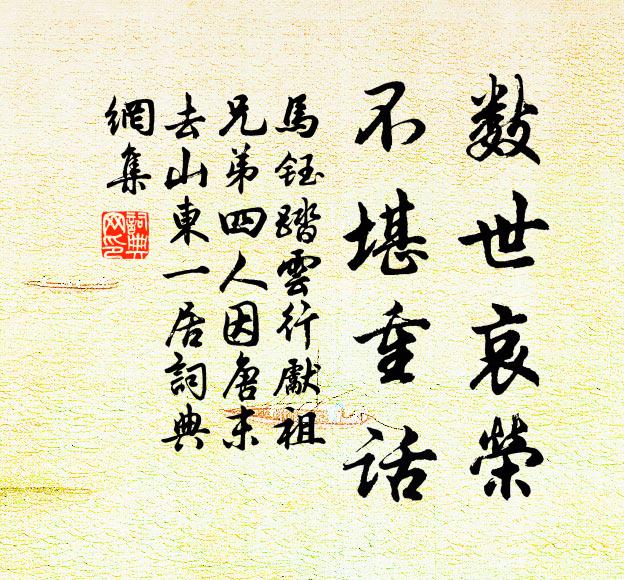 數世哀榮
不堪重話
馬鈺踏雲行厭祖
兄弟四人因唐末
去山東一居詞典
網集
詞典
网印